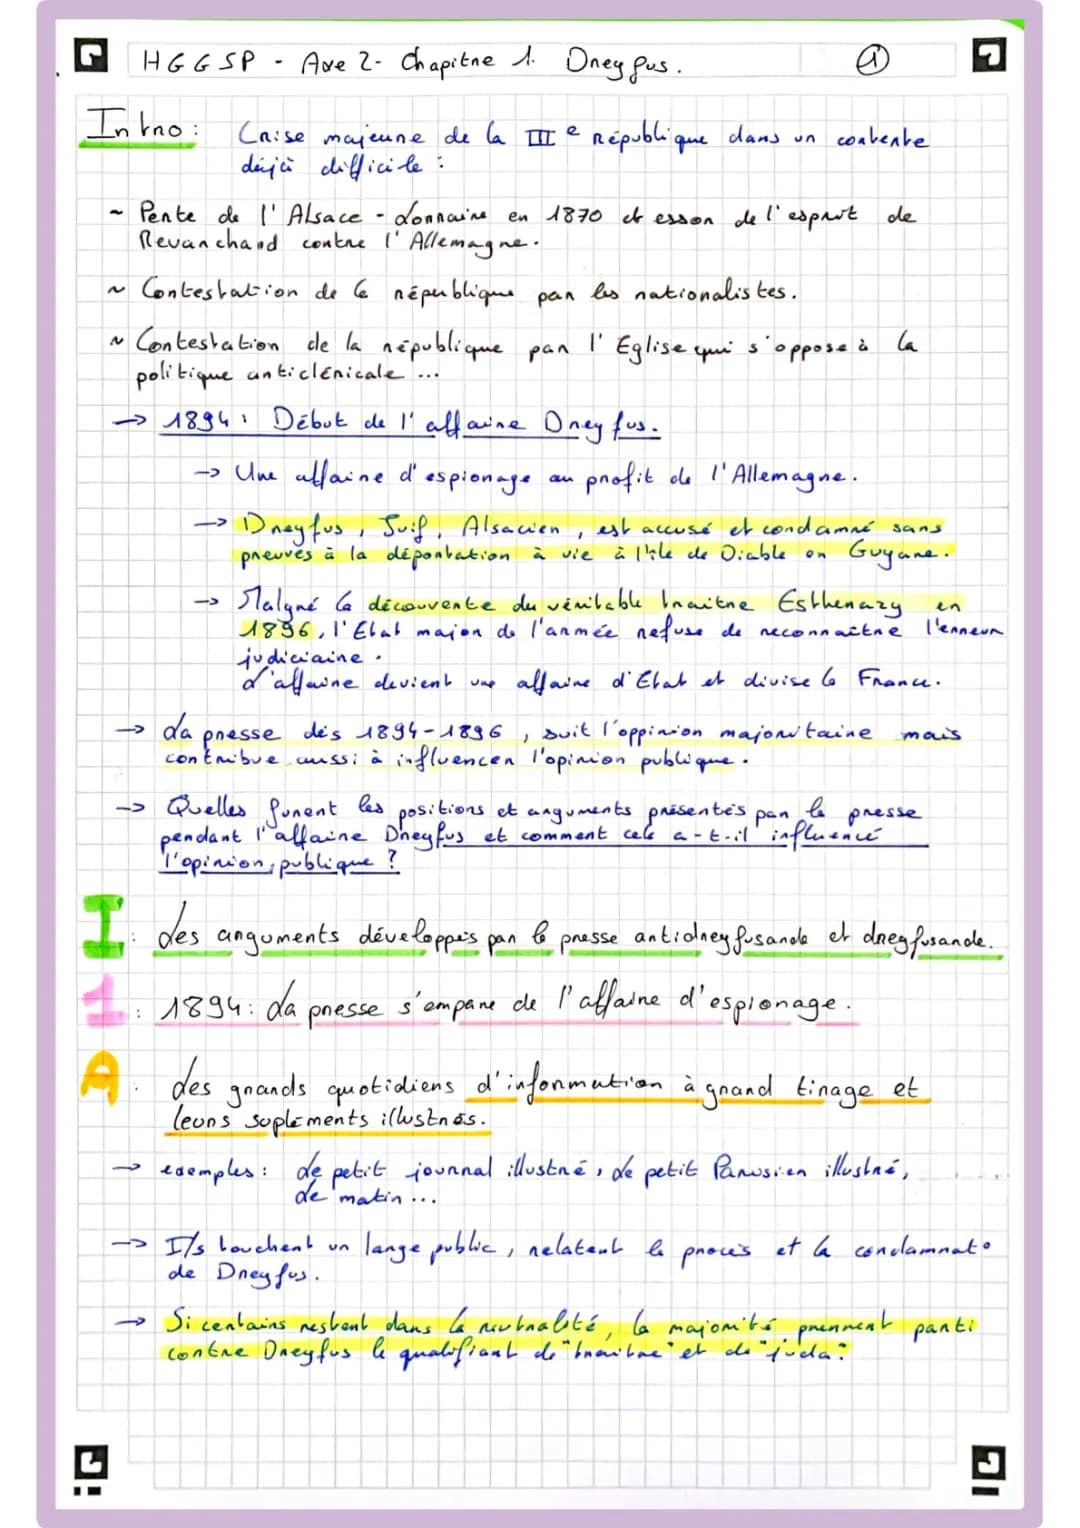 HGGSP - Axe 2- Chapitre 1. Dreyfus. 1
Intro: Crise majeure de la IIIe République dans un contexte
déjà difficile :
~ Perte de l'Alsace-Lorraine en 1870 et essor de l'esprit de
Revanchard contre l'Allemagne.
~ Contestation de la république par les nationalistes.
~ Contestation de la république par l'Eglise qui s'oppose à la
politique anticléricale ...
→ 1894: Début de l'affaire Dreyfus.
→ Une affaire d'espionage au profit de l'Allemagne.
→ Dreyfus, Juif, Alsacien, est accusé et condamné sans
preuves à la déportation à vie à l'île de Diable en Guyane.
→ Malgré la découverte du véritable traitre Estherazy en
1896, l'Etat major de l'armée refuse de reconnaître l'erreur
judiciaire.
L'affaire devient une affaire d'Etat et divise la France.
→ La presse dès 1894-1896, suit l'oppinion majoritaire mais
contribue aussi à influencer l'opinion publique.
→ Quelles furent les positions et arguments présentés par la presse
pendant l'affaire Dreyfus et comment cela a-t-il influencé
l'opinion publique ?
I: Les arguments développés par la presse antidreyfusarde et dreyfusarde.
1: 1894: La presse s'empare de l'affaire d'espionage.
A. Les grands quotidiens d'information à grand tirage et
leurs supléments illustrés.
→ exemples: Le petit journal illustré, Le petit Parisien illustré,
Le matin ...
→ Ils touchent un large public, relatent le procès et la condamnat°
de Dreyfus.
→ Si certains restent dans la neutralité, la majorité prennent parti
contre Dreyfus le qualifiant de "traitre" et de "juda".